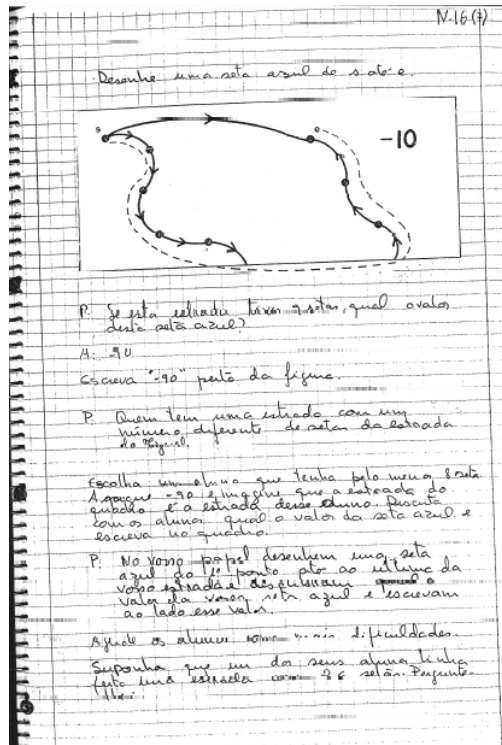 N-16(7)
Desenhe uma seta azul de s até e.
s
e
-10
P. Se esta estrada tiver 9 setas, qual o valor
desta seta azul?
A: -90
Escreva "-90" perto da figura.
P. Quem tem uma estrada com um
número diferente de setas da estrada
do
Escolha um aluno que tenha pelo menos 8 setas
Apague -90 e imagine que a estrada do
quadro é a estrada desse aluno. Discuta
com os alunos qual o valor da seta azul e
escreva no quadro.
P. No vosso papel desenhem uma seta
azul do 1º ponto até ao ultimo da
vossa estrada e
valor da vossa seta azul e escrevam
ao lado esse valor.
Ajude os alunos com mais dificuldades.
Suponha que um dos seus alunos tinha
feito uma estrada com 36 setas. Pergunte-